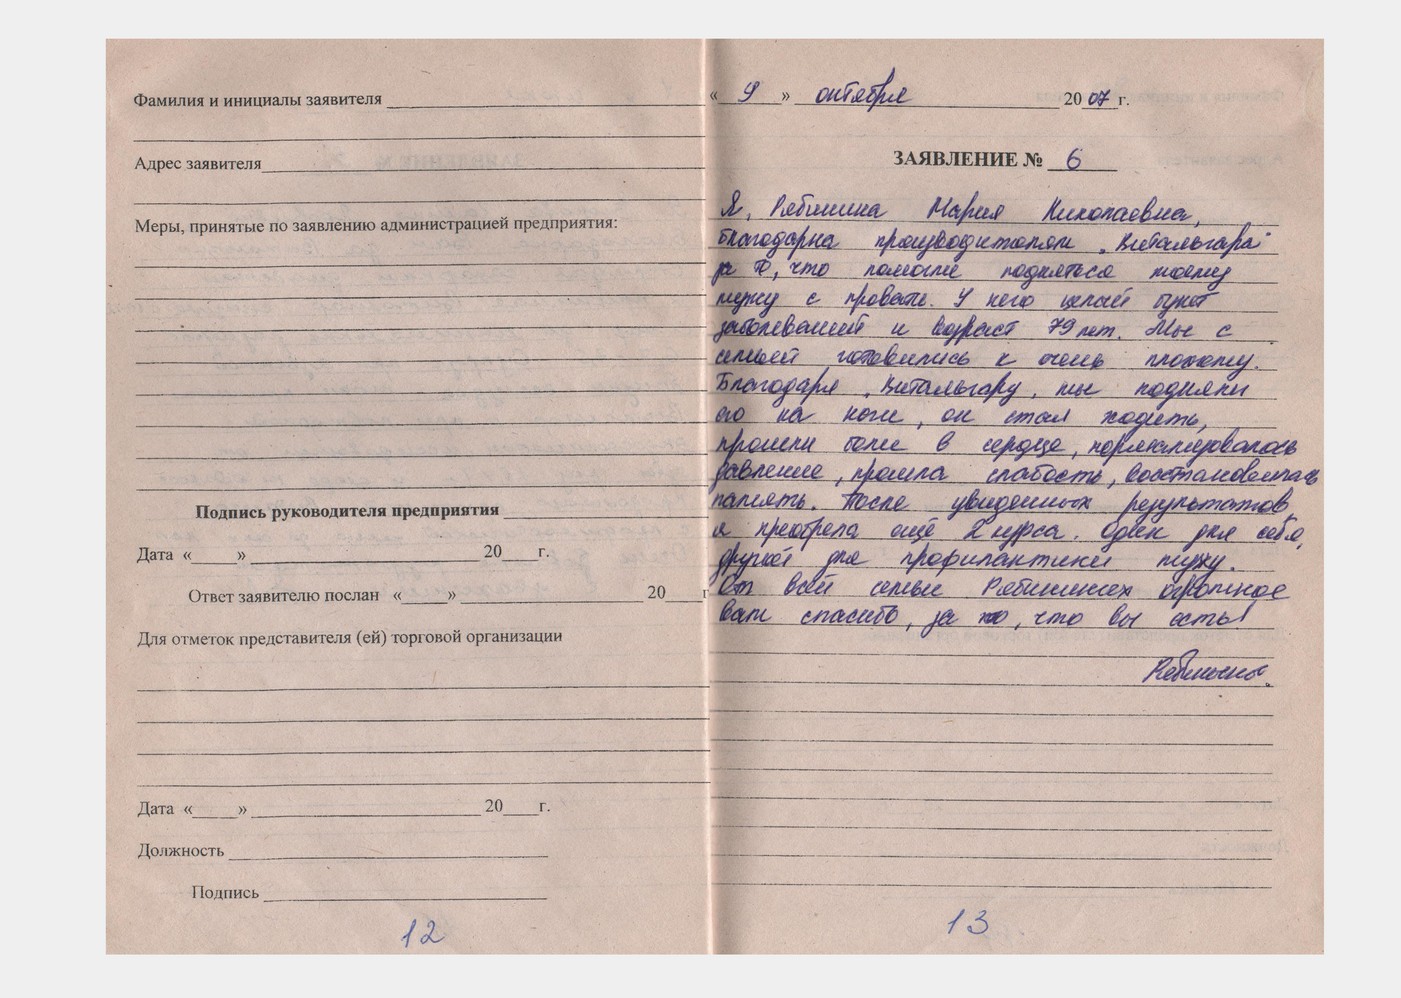 Фамилия и инициалы заявителя
Адрес заявителя
Меры, принятые по заявлению администрацией предприятия:
Подпись руководителя предприятия
Дата «_____» 20____г.
Ответ заявителю послан «_____» 20____г
Для отметок представителя (ей) торговой организации
Дата «_____» 20____г.
Должность
Подпись
12
« 9 » октября 2007 г.
ЗАЯВЛЕНИЕ № 6
Я, Рябинина Мария Николаевна,
благодарна производителям „Витальгара"
за то, что помогли подняться моему
мужу с кровати. У него целый букет
заболеваний и возраст 79 лет. Мы с
семьей готовились к очень плохому.
Благодаря „Витальгару, мы подняли
его на ноги, он стал ходить,
прошли боли в сердце, нормализовалось
давление, прошла слабость, восстановилась
память. После увиденных результатов
я преобрела ещё 2 курса. Один для себя,
другой для профилактики мужу.
От всей семьи Рябининых огромное
вам спасибо, за то, что вы есть!
13